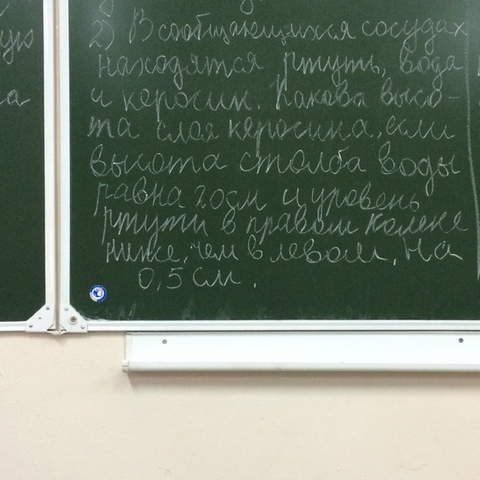 ую
а
2) В сообщающихся сосудах
находятся ртуть, вода
и керосин. Какова высо-
та слоя керосина, если
высота столба воды
равна 20 см и уровень
ртути в правом колене
ниже, чем в левом, на
0,5 см.